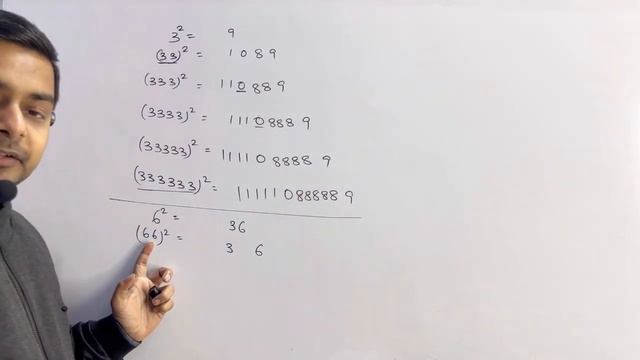 3² = 9
(33)² = 1089
(333)² = 110889
(3333)² = 11108889
(33333)² = 1111088889
(333333)² = 111110888889
6² = 36
(66)² = 3 6